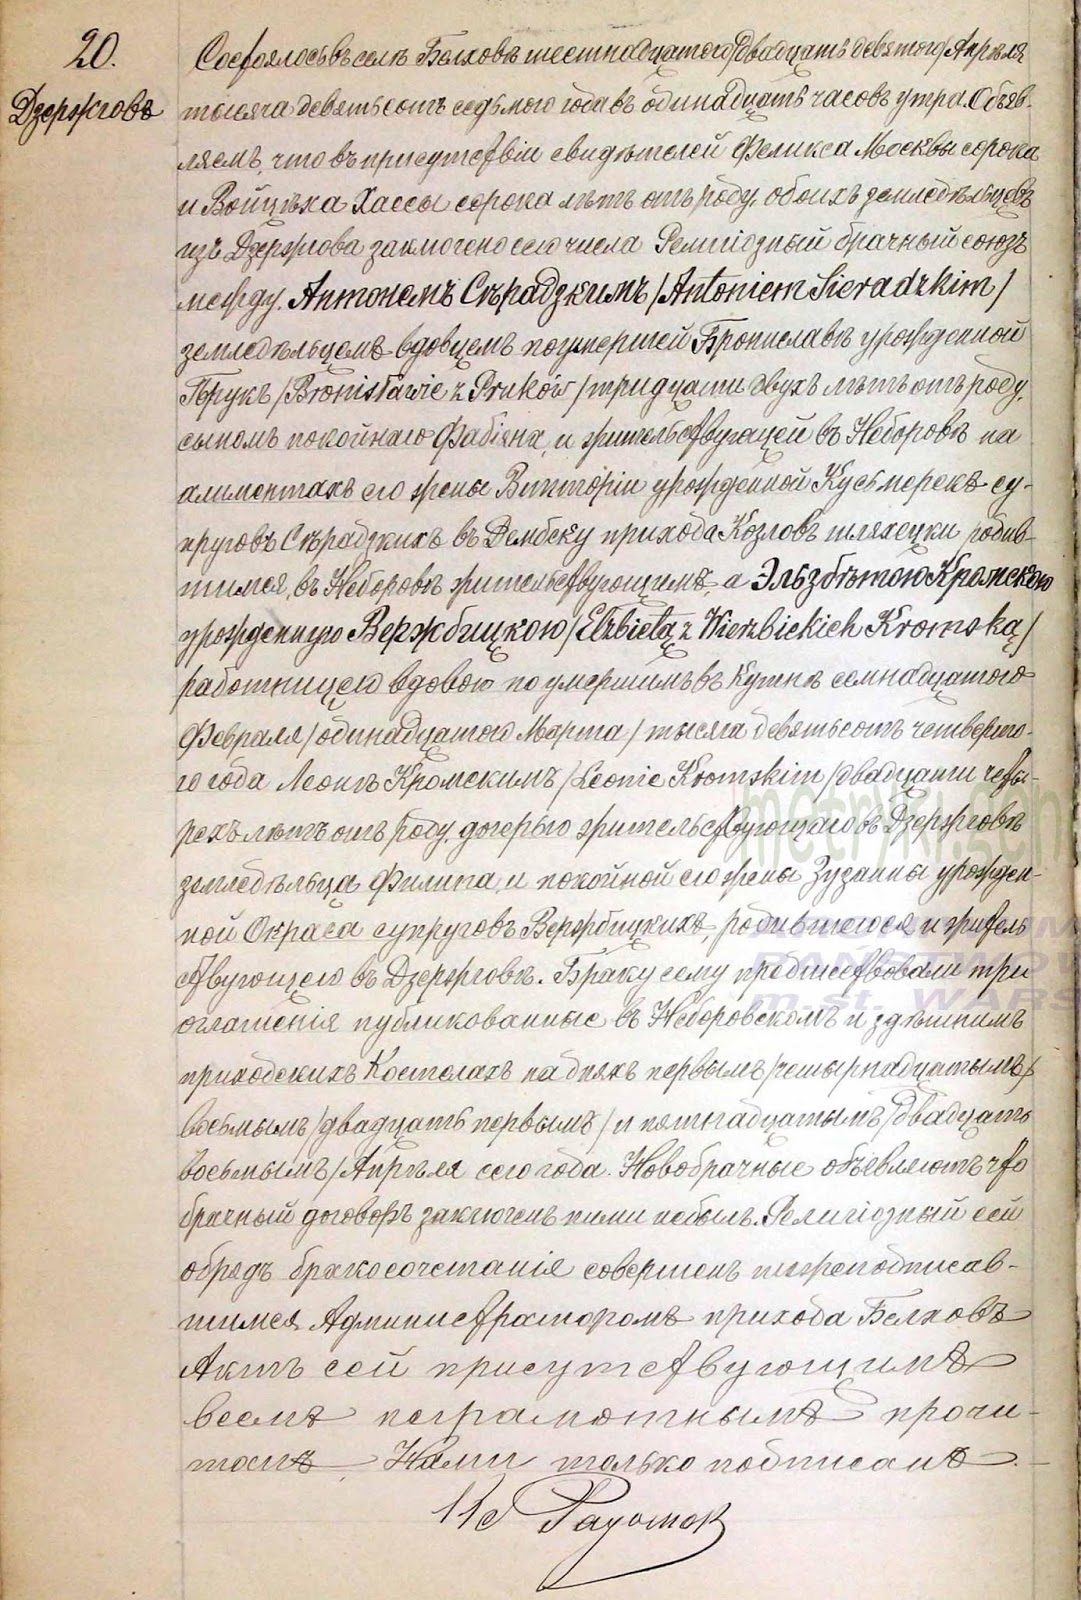 20.
Дзержговъ
Состоялось въ селѣ Бѣлховѣ шестнадцатого /двадцать девятого/ Апрѣля
тысяча девятьсотъ седьмого года въ одинадцать часовъ утра. Объяв-
ляемъ, что въ присутствіи свидѣтелей Феликса Москвы сорока
и Войцѣха Хассы сорока лѣтъ отъ роду, обоихъ земледѣльцевъ
изъ Дзержгова заключено сего числа Религіозный брачный союзъ
между Антонемъ Сѣрадзкимъ /Antoniem Sieradzkim/
земледѣльцемъ вдовцемъ по умершей Брониславѣ урожденной
Прукъ /Bronisławie z Pruków/ тридцати двухъ лѣтъ отъ роду,
сыномъ покойнаго Фабіяна, и жительствующей въ Неборовѣ на
алиментахъ его жены Викторіи урожденной Кусьмерекъ су-
пруговъ Сѣрадзкихъ въ Дембску прихода Козловъ шляхецки родив-
шимся, въ Неборовѣ жительствующимъ, а Эльзбѣтою Кромскою
урожденную Вержбицкою /Elżbietą z Wierzbickich Kromską/
работницею вдовою по умершимъ въ Кутнѣ семнадцатого
Февраля /одинадцатого Марта/ тысяча девятьсотъ четверто-
го года Леонѣ Кромскимъ /Leonie Kromskim/ двадцати четы-
рехъ лѣтъ отъ роду, дочерью жительствующаго въ Дзержговѣ
земледѣльца Филипа, и покойной его жены Зузанны урожден-
ной Окраса супруговъ Вержбицкихъ, родившеюся и житель
ствующею въ Дзержговѣ. Браку сему предшествовали три
оглашенія публикованные въ Неборовскомъ и здѣшнимъ
приходскихъ Костелахъ на дняхъ первымъ /четырнадцатымъ/
восьмымъ /двадцать первымъ/ и пятнадцатымъ /двадцать
восьмымъ/ Апрѣля сего года. Новобрачные объевляютъ что
брачный договоръ заключенъ ними небылъ. Религіозный сей
обрядъ бракосочетанія совершенъ нижеподписав-
шимся Администраторомъ прихода Бѣлховъ
Актъ сей присутствующимъ
всемъ неграмотнымъ прочи-
танъ Нами только подписанъ.
Кс
metryki.gen
PAŃSTWOW
m.st. WARS